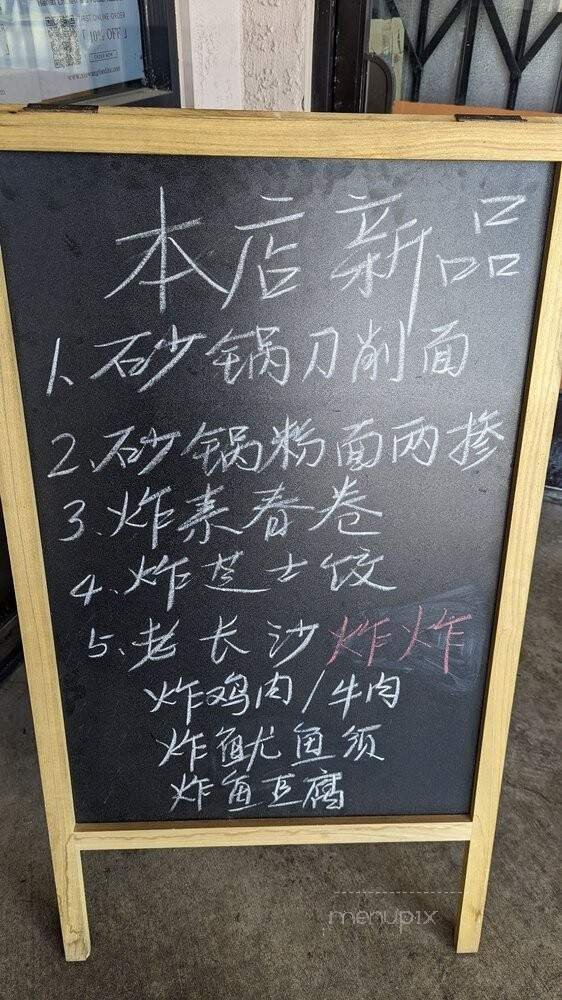 FIRST ONLINE ORDER
10% OFF
本店新品
1、砂锅刀削面
2、砂锅粉面两掺
3、炸素春卷
4、炸芝士饺
5、老长沙炸炸
炸鸡肉/牛肉
炸鱿鱼须
炸鱼豆腐
menupix